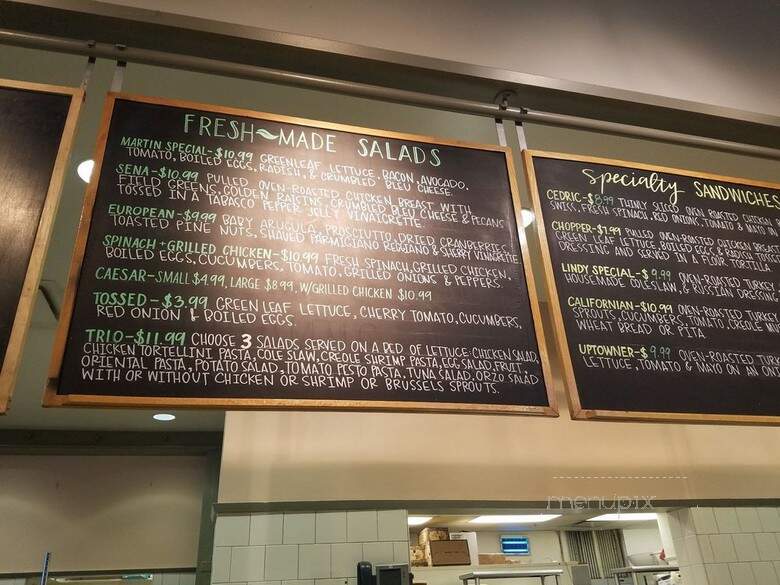 FRESH~MADE SALADS
MARTIN SPECIAL-$10.99 GREENLEAF LETTUCE, BACON, AVOCADO,
TOMATO, BOILED EGGS, RADISH, & CRUMBLED BLEU CHEESE.
SENA-$10.99 PULLED OVEN-ROASTED CHICKEN BREAST WITH
FIELD GREENS, GOLDEN RAISINS, CRUMBLED BLEU CHEESE & PECANS
TOSSED IN A TABASCO PEPPER JELLY VINAIGRETTE.
EUROPEAN-$9.99 BABY ARUGULA, PROSCIUTTO, DRIED CRANBERRIES
TOASTED PINE NUTS, SHAVED PARMIGIANO REGGIANO & SHERRY VINAIGRETTE
SPINACH + GRILLED CHICKEN-$10.99 FRESH SPINACH, GRILLED CHICKEN,
BOILED EGGS, CUCUMBERS, TOMATO, GRILLED ONIONS & PEPPERS
CAESAR-SMALL $4.99, LARGE $8.99, W/GRILLED CHICKEN $10.99
TOSSED-$3.99 GREEN LEAF LETTUCE, CHERRY TOMATO, CUCUMBERS,
RED ONION & BOILED EGGS.
TRIO-$11.99 CHOOSE 3 SALADS SERVED ON A BED OF LETTUCE: CHICKEN SALAD,
CHICKEN TORTELLINI PASTA, COLE SLAW, CREOLE SHRIMP PASTA, EGG SALAD, FRUIT,
ORIENTAL PASTA, POTATO SALAD, TOMATO PESTO PASTA, TUNA SALAD, ORZO SALAD
WITH OR WITHOUT CHICKEN OR SHRIMP OR BRUSSELS SPROUTS.
Specialty SANDWICHES
CEDRIC-$8.99 THINLY SLICED OVEN ROASTED CHICKEN
SWISS, FRESH SPINACH, RED ONIONS, TOMATO & MAYO
CHOPPER-$7.99 PULLED OVEN-ROASTED CHICKEN BREAST
GREEN LEAF LETTUCE, BOILED EGG & RADISH TOSSED
DRESSING AND SERVED IN A FLOUR TORTILLA
LINDY SPECIAL-$9.99 OVEN-ROASTED TURKEY
HOUSEMADE COLESLAW & RUSSIAN DRESSING
CALIFORNIAN-$10.99 OVEN-ROASTED TURKEY
SPROUTS, CUCUMBERS, TOMATO, CREOLE
WHEAT BREAD OR PITA
UPTOWNER-$9.99 OVEN-ROASTED
LETTUCE, TOMATO & MAYO ON AN
menupix